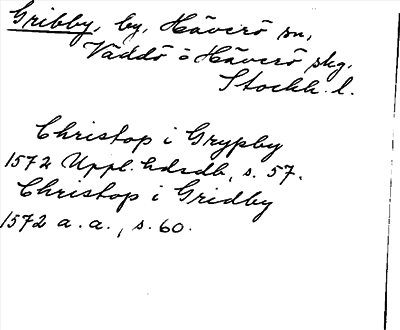 Gribby, by, Häverö sn,
Väddö o Häverö skg.
Stockh. l.
Christop i Grypby
1572 Uppl. hdsdh, s. 57.
Christop i Gridby
1572 a. a., s. 60.